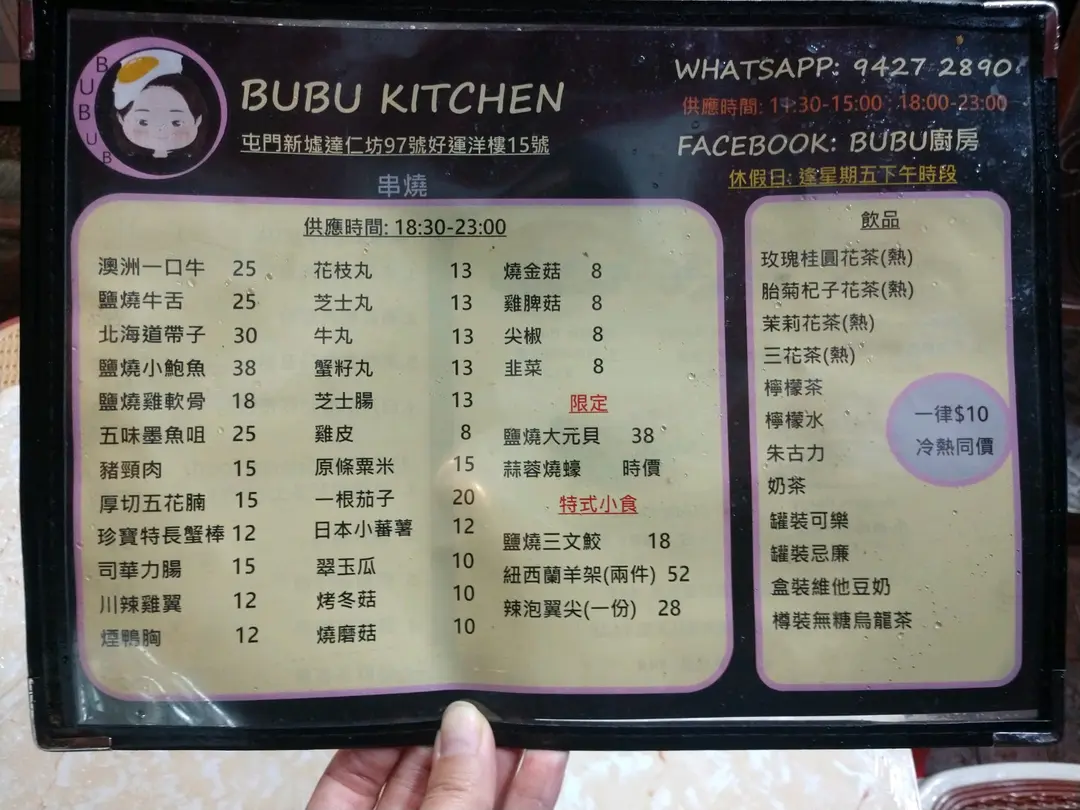 BUBU
BUB
BUBU KITCHEN
屯門新墟達仁坊97號好運洋樓15號
WHATSAPP: 9427 2890
供應時間: 11:30-15:00 ; 18:00-23:00
FACEBOOK: BUBU廚房
休假日: 逢星期五下午時段
串燒
供應時間: 18:30-23:00
澳洲一口牛 25
鹽燒牛舌 25
北海道帶子 30
鹽燒小鮑魚 38
鹽燒雞軟骨 18
五味墨魚咀 25
豬頸肉 15
厚切五花腩 15
珍寶特長蟹棒 12
司華力腸 15
川辣雞翼 12
煙鴨胸 12
花枝丸 13
芝士丸 13
牛丸 13
蟹籽丸 13
芝士腸 13
雞皮 8
原條粟米 15
一根茄子 20
日本小蕃薯 12
翠玉瓜 10
烤冬菇 10
燒磨菇 10
燒金菇 8
雞脾菇 8
尖椒 8
韭菜 8
限定
鹽燒大元貝 38
蒜蓉燒蠔 時價
特式小食
鹽燒三文鮫 18
紐西蘭羊架(兩件) 52
辣泡翼尖(一份) 28
飲品
玫瑰桂圓花茶(熱)
胎菊杞子花茶(熱)
茉莉花茶(熱)
三花茶(熱)
檸檬茶
檸檬水
朱古力
奶茶
罐裝可樂
罐裝忌廉
盒裝維他豆奶
樽裝無糖烏龍茶
一律$10
冷熱同價